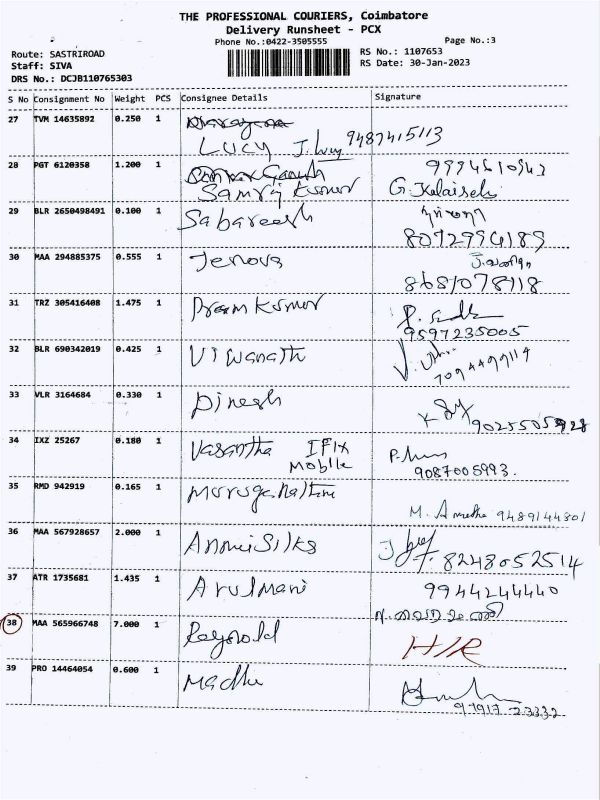 THE PROFESSIONAL COURIERS, Coimbatore
Delivery Runsheet - PCX
Phone No.:0422-3505555 Page No.:3
Route: SASTRIROAD RS No.: 1107653
Staff: SIVA RS Date: 30-Jan-2023
DRS No.: DCJB110765303
S No Consignment No Weight PCS Consignee Details Signature
27 TVM 14635892 0.250 1
LUCY J. Lucy 9487415113
28 PGT 6120358 1.200 1 9994610943
Samraj Kumar G. Kalaiselvi
29 BLR 2650498491 0.100 1 Sabareesh
8072996189
30 MAA 294885375 0.555 1 Jenova
8681078118
31 TRZ 305416408 1.475 1 Prem Kumar
9597235005
32 BLR 690342019 0.425 1 Viswanath
7094499114
33 VLR 3164684 0.330 1 Dinesh
9025505928
34 IXZ 25267 0.180 1 Vasantha IFix
Mobile
9087005993.
35 RMD 942919 0.165 1
M. Amudha 9489144801
36 MAA 567928657 2.000 1 Annai Silks
8248052514
37 ATR 1735681 1.435 1 Arulmani 9944244440
38 MAA 565966748 7.000 1 Reynold H/R
39 PRO 14464054 0.600 1 Madhu
97917 23332